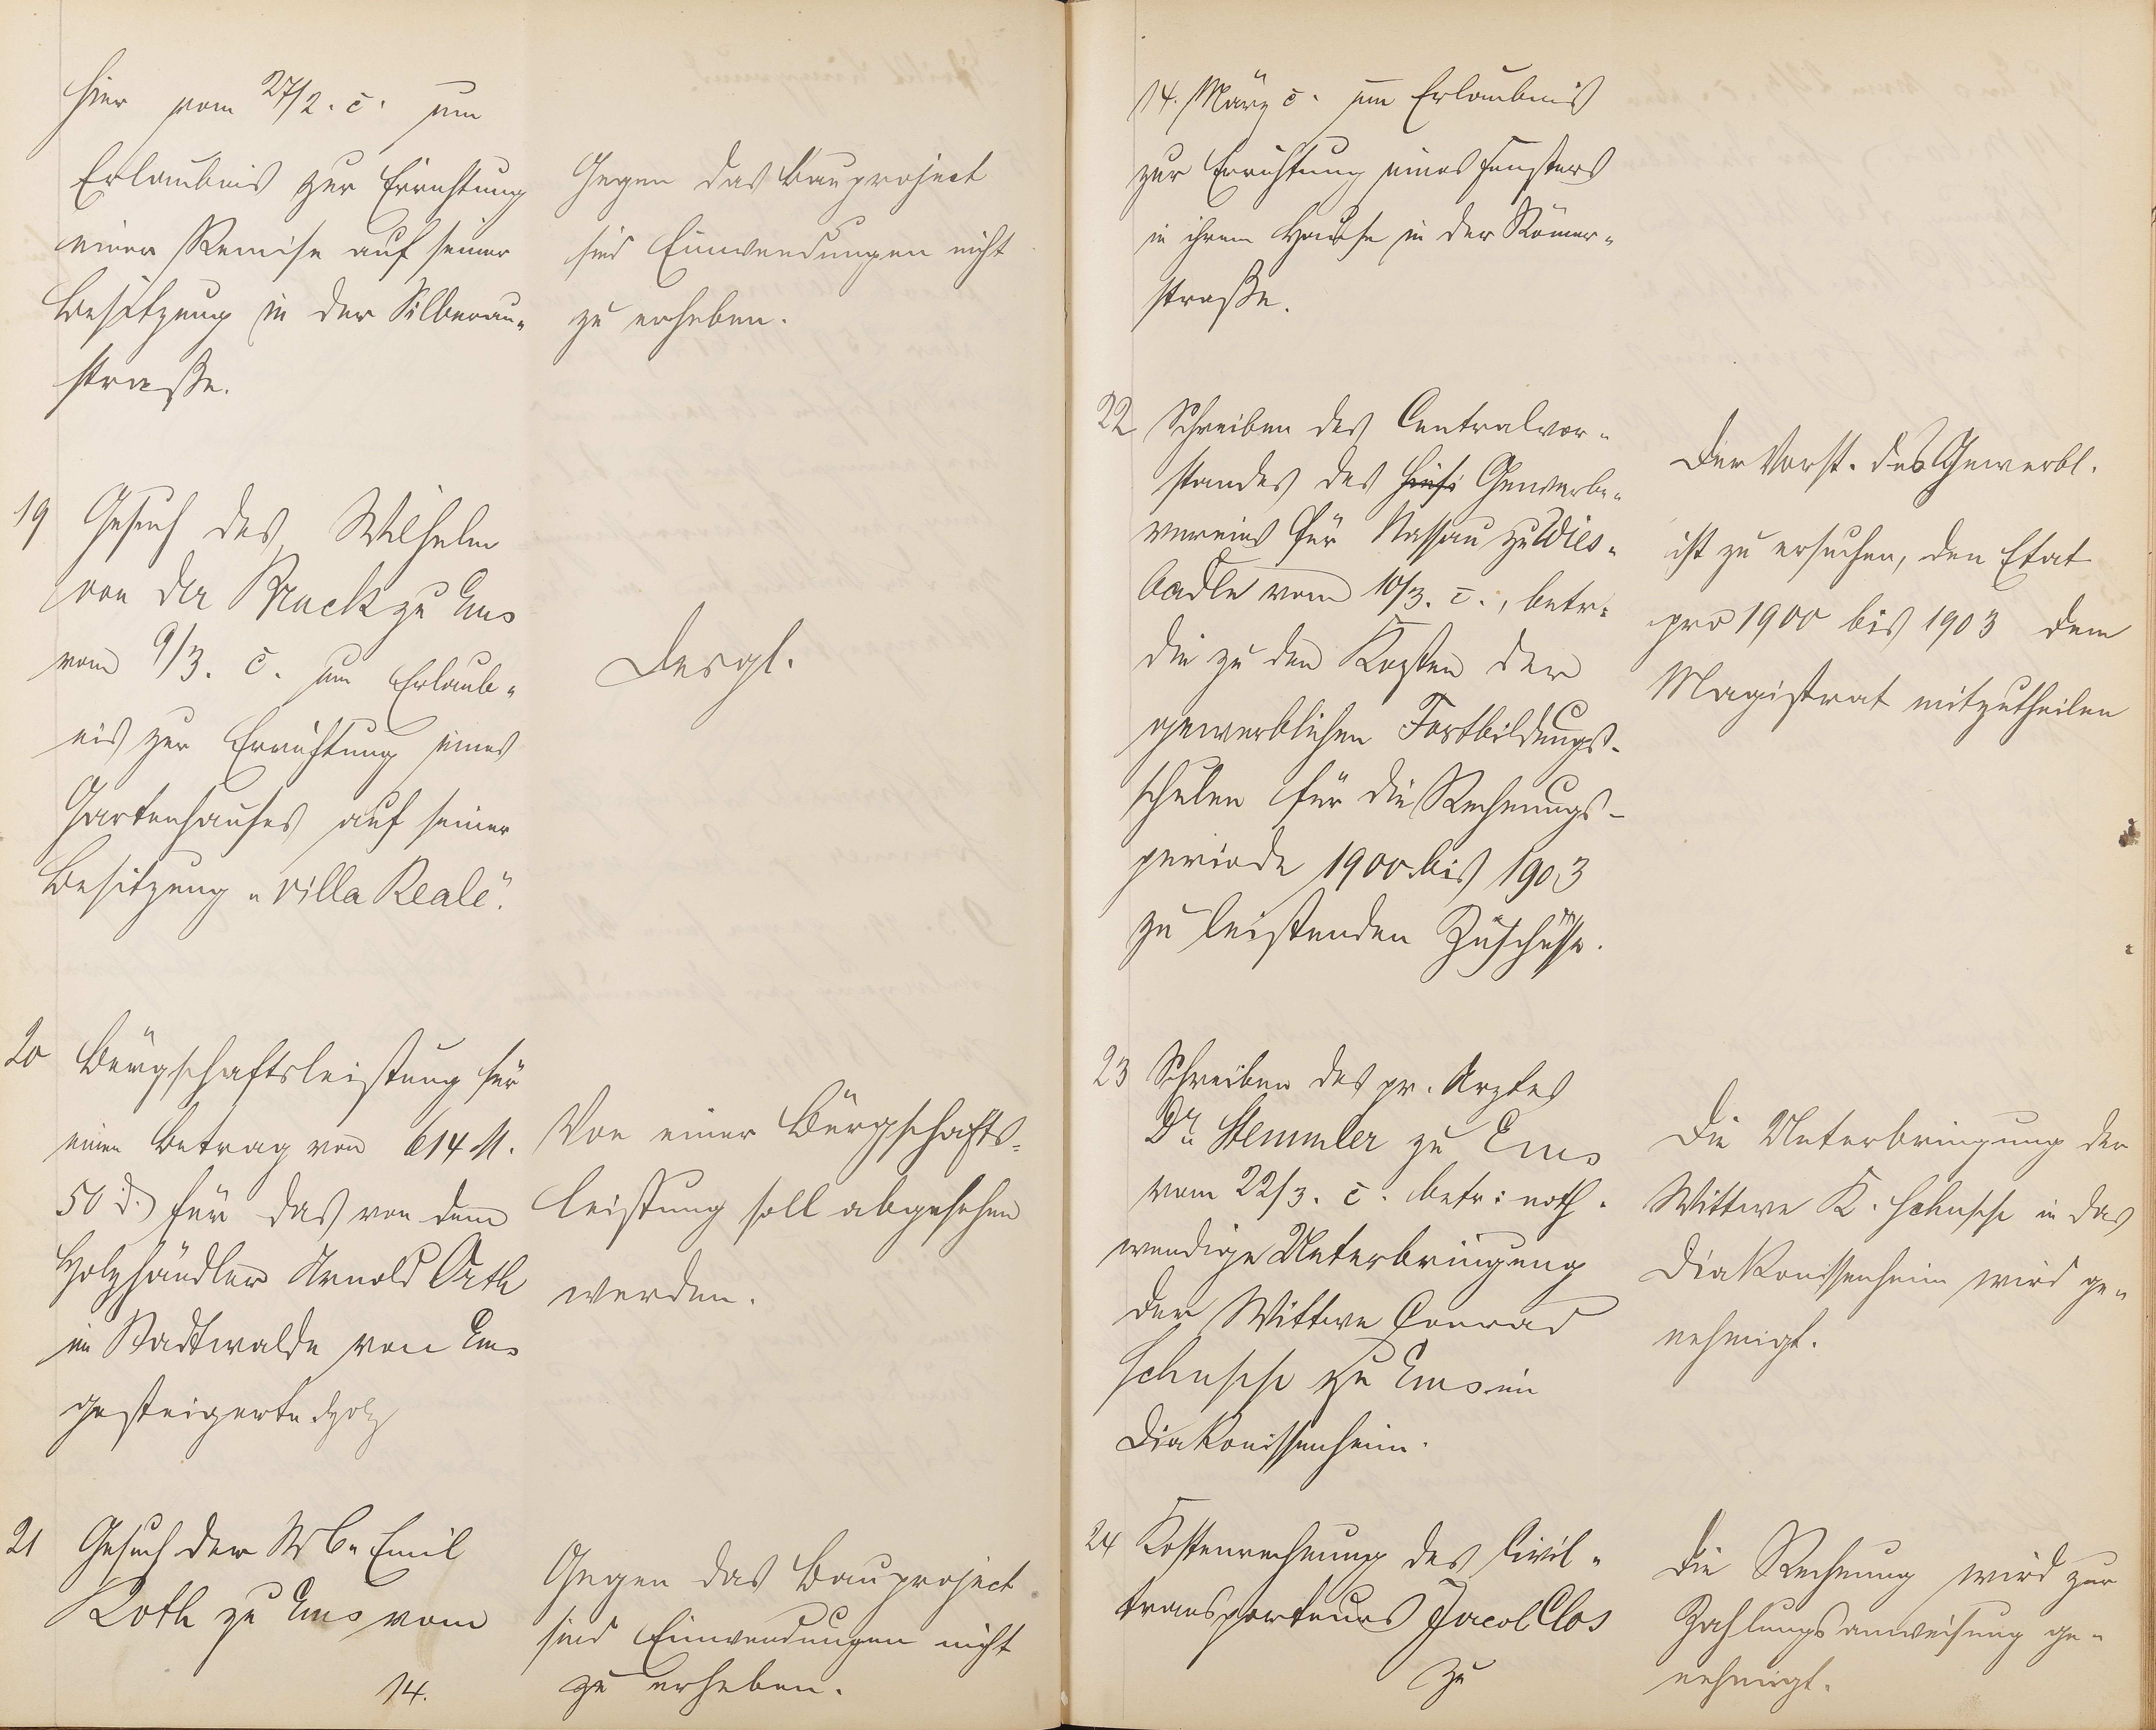 hier vom 27/2. c. um
Erlaubnis zur Errichtung
einer Remise auf seiner
Besitzung in der Silberau-
straße.
Gegen das Bauproject
sind Einwendungen nicht
zu erheben.
19 Gesuch des Wilhelm
von der Nuck zu Ems
vom 9/3. c. um Erlaub-
nis zur Errichtung eines
Gartenhauses auf seiner
Besitzung "Villa Reale".
Desgl.
20 Bürgschaftsleistung für
einen Betrag von 614 M.
50 d. für das von dem
Holzhändler Arnold Orth
im Stadtwalde von Ems
gesteigerte Holz
Von einer Bürgschafts-
leistung soll abgesehen
werden.
21 Gesuch der Emil
Roth zu Ems vom
14.
Gegen das Bauproject
sind Einwendungen nicht
zu erheben.
14. März c. um Erlaubnis
zur Errichtung eines Fensters
in ihrem Hause in der Römer-
straße.
22 Schreiben des Centralvor-
standes des Gewerbe-
vereins für Nassau zu Wies-
baden vom 10/3. c., betr:
die zu den Kosten der
gewerblichen Fortbildungs-
schulen für die Rechnungs-
periode 1900 bis 1903
zu leistenden Zuschüsse.
Der Vorst. des Gewerbl.
ist zu ersuchen, den Etat
pro 1900 bis 1903 dem
Magistrat mitzutheilen
23 Schreiben des pr. Arztes
Dr. Stemmler zu Ems
vom 22/3. c. betr: noth-
wendige Unterbringung
der Wittwe Conrad
zu Ems im
Diakonissenheim.
Die Unterbringung der
Wittwe K. in das
Diakonissenheim wird ge-
nehmigt.
24 Kostenrechnung des Civil-
transporteurs Jacob Clos
zu
Die Rechnung wird zur
Zahlungsanweisung ge-
nehmigt.